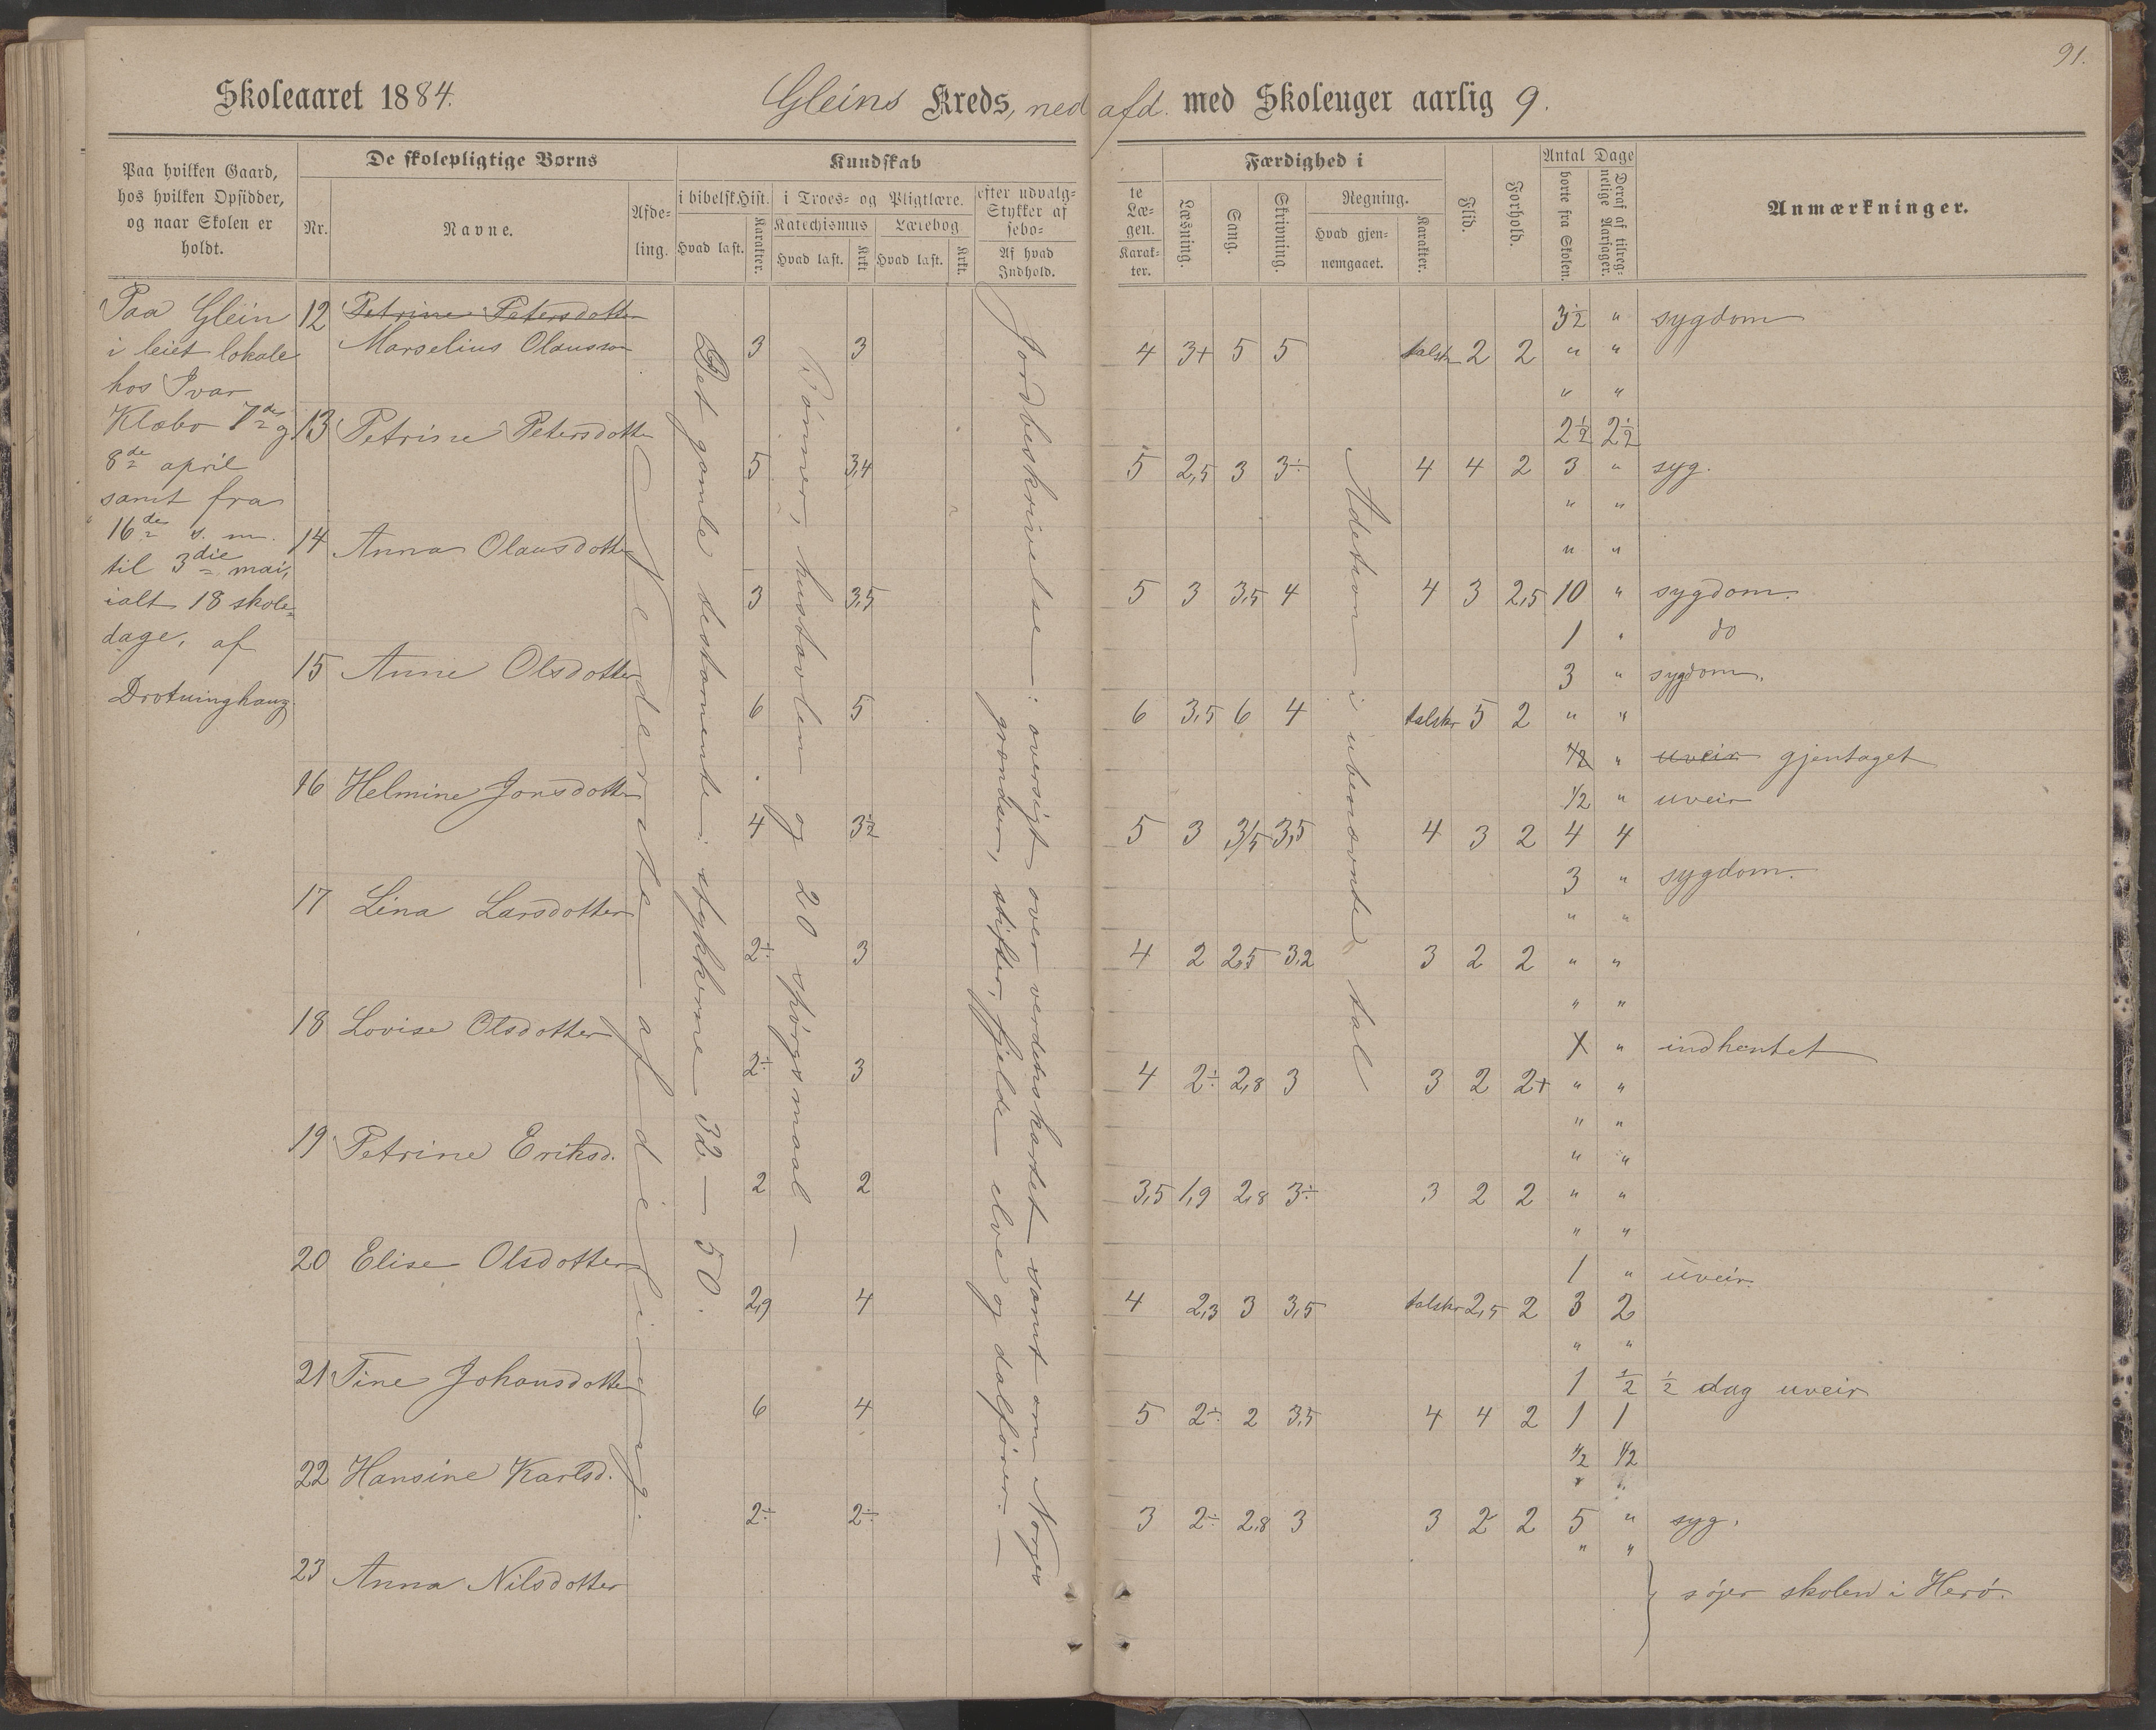 91.
Skoleaaret 1884.
Gleins Kreds, ned afd. med Skoleuger aarlig 9.
Paa hvilken Gaard,
hos hvilken Opsidder,
og naar Skolen er
holdt.
De skolepligtige Børns
Nr.
Navne.
Afde-
ling.
Kundskab
i bibelsk Hist.
Hvad læst.
Karakter.
i Troes- og Pligtlære.
Katechismus
Hvad læst.
Krkt
Lærebog
Hvad læst.
Krkt.
efter udvalg-
Stykker af
sebo-
Af hvad
Indhold.
te
Læ-
gen.
Karak-
ter.
Færdighed i
Læsning.
Sang.
Skrivning.
Regning.
Hvad gjen-
nemgaaet.
Karakter.
Flid.
Forhold.
Antal Dage
borte fra Skolen.
Deraf af tilreg-
nelige Aarsager.
Anmærkninger.
Paa Glein
i leiet lokale
hos Ivar
Klæbo 7de og
8de april
samt fra
16de s. m.
til 3die mai,
ialt 18 skole-
dage, af
Drotninghaug
Nederste afdeling.
Det gamle testamente: stykkerne 32 — 50.
Bönner, hustavlen og 20 spörgsmaal —
Jordbeskrivelse: oversigt over verdenskartet samt om Norges
grændser, stifter, fjelde elve og dalförer. —
Adetion i ubenævnte tal
12 Petrine Petersdotter 3½ " sygdom
Marselius Olausson 3 3 4 3+ 5 5 talskr 2 2 " "
" "
13 Petrine Petersdotter 2½ 2½
5 3,4 5 2,5 3 3÷ 4 4 2 3 " syg.
" "
14 Anna Olausdotter " "
3 3,5 5 3 3,5 4 4 3 2,5 10 " sygdom.
1 " do
15 Anne Olsdotter 3 " sygdom.
6 5 6 3,5 6 4 talskr 5 2 " "
½ " uveir gjentaget
16 Helmine Jonsdotter ½ " uveir
4 3½ 5 3 3/5 3,5 4 3 2 4 4
3 " sygdom.
17 Lina Larsdotter " "
2÷ 3 4 2 2,5 3,2 3 2 2 " "
" "
18 Lovise Olsdotter X " indhentet
2÷ 3 4 2÷ 2,8 3 3 2 2+ " "
" "
19 Petrine Eriksd. " "
2 2 3,5 1,9 2,8 3÷ 3 2 2 " "
" "
20 Elise Olsdotter 1 " uveir
2,9 4 4 2,3 3 3,5 talskr 2,5 2 3 2
" "
21 Tine Johansdotter 1 ½ ½ dag uveir
6 4 5 2÷ 2 3,5 4 4 2 1 1
½ ½
22 Hansine Karlsd. "
2÷ 2÷ 3 2÷ 2,8 3 3 2 2 5 " syg.
" "
23 Anna Nilsdotter söger skolen i Herö.